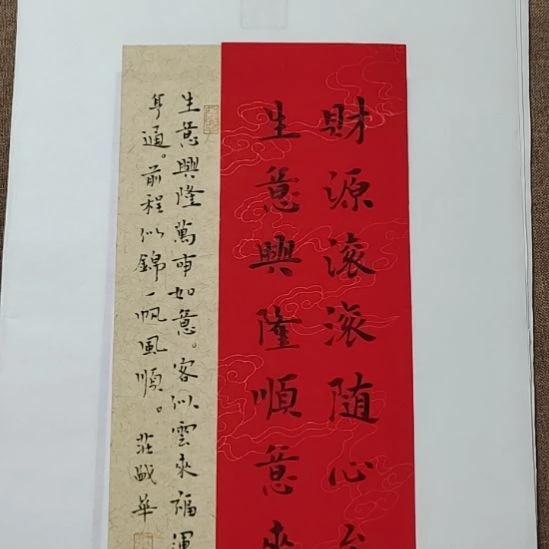 財源滚滚随心
生意興隆順意來
生意興隆萬事如意。客似雲來福運
亨通。前程似錦一帆風順。莊啟華